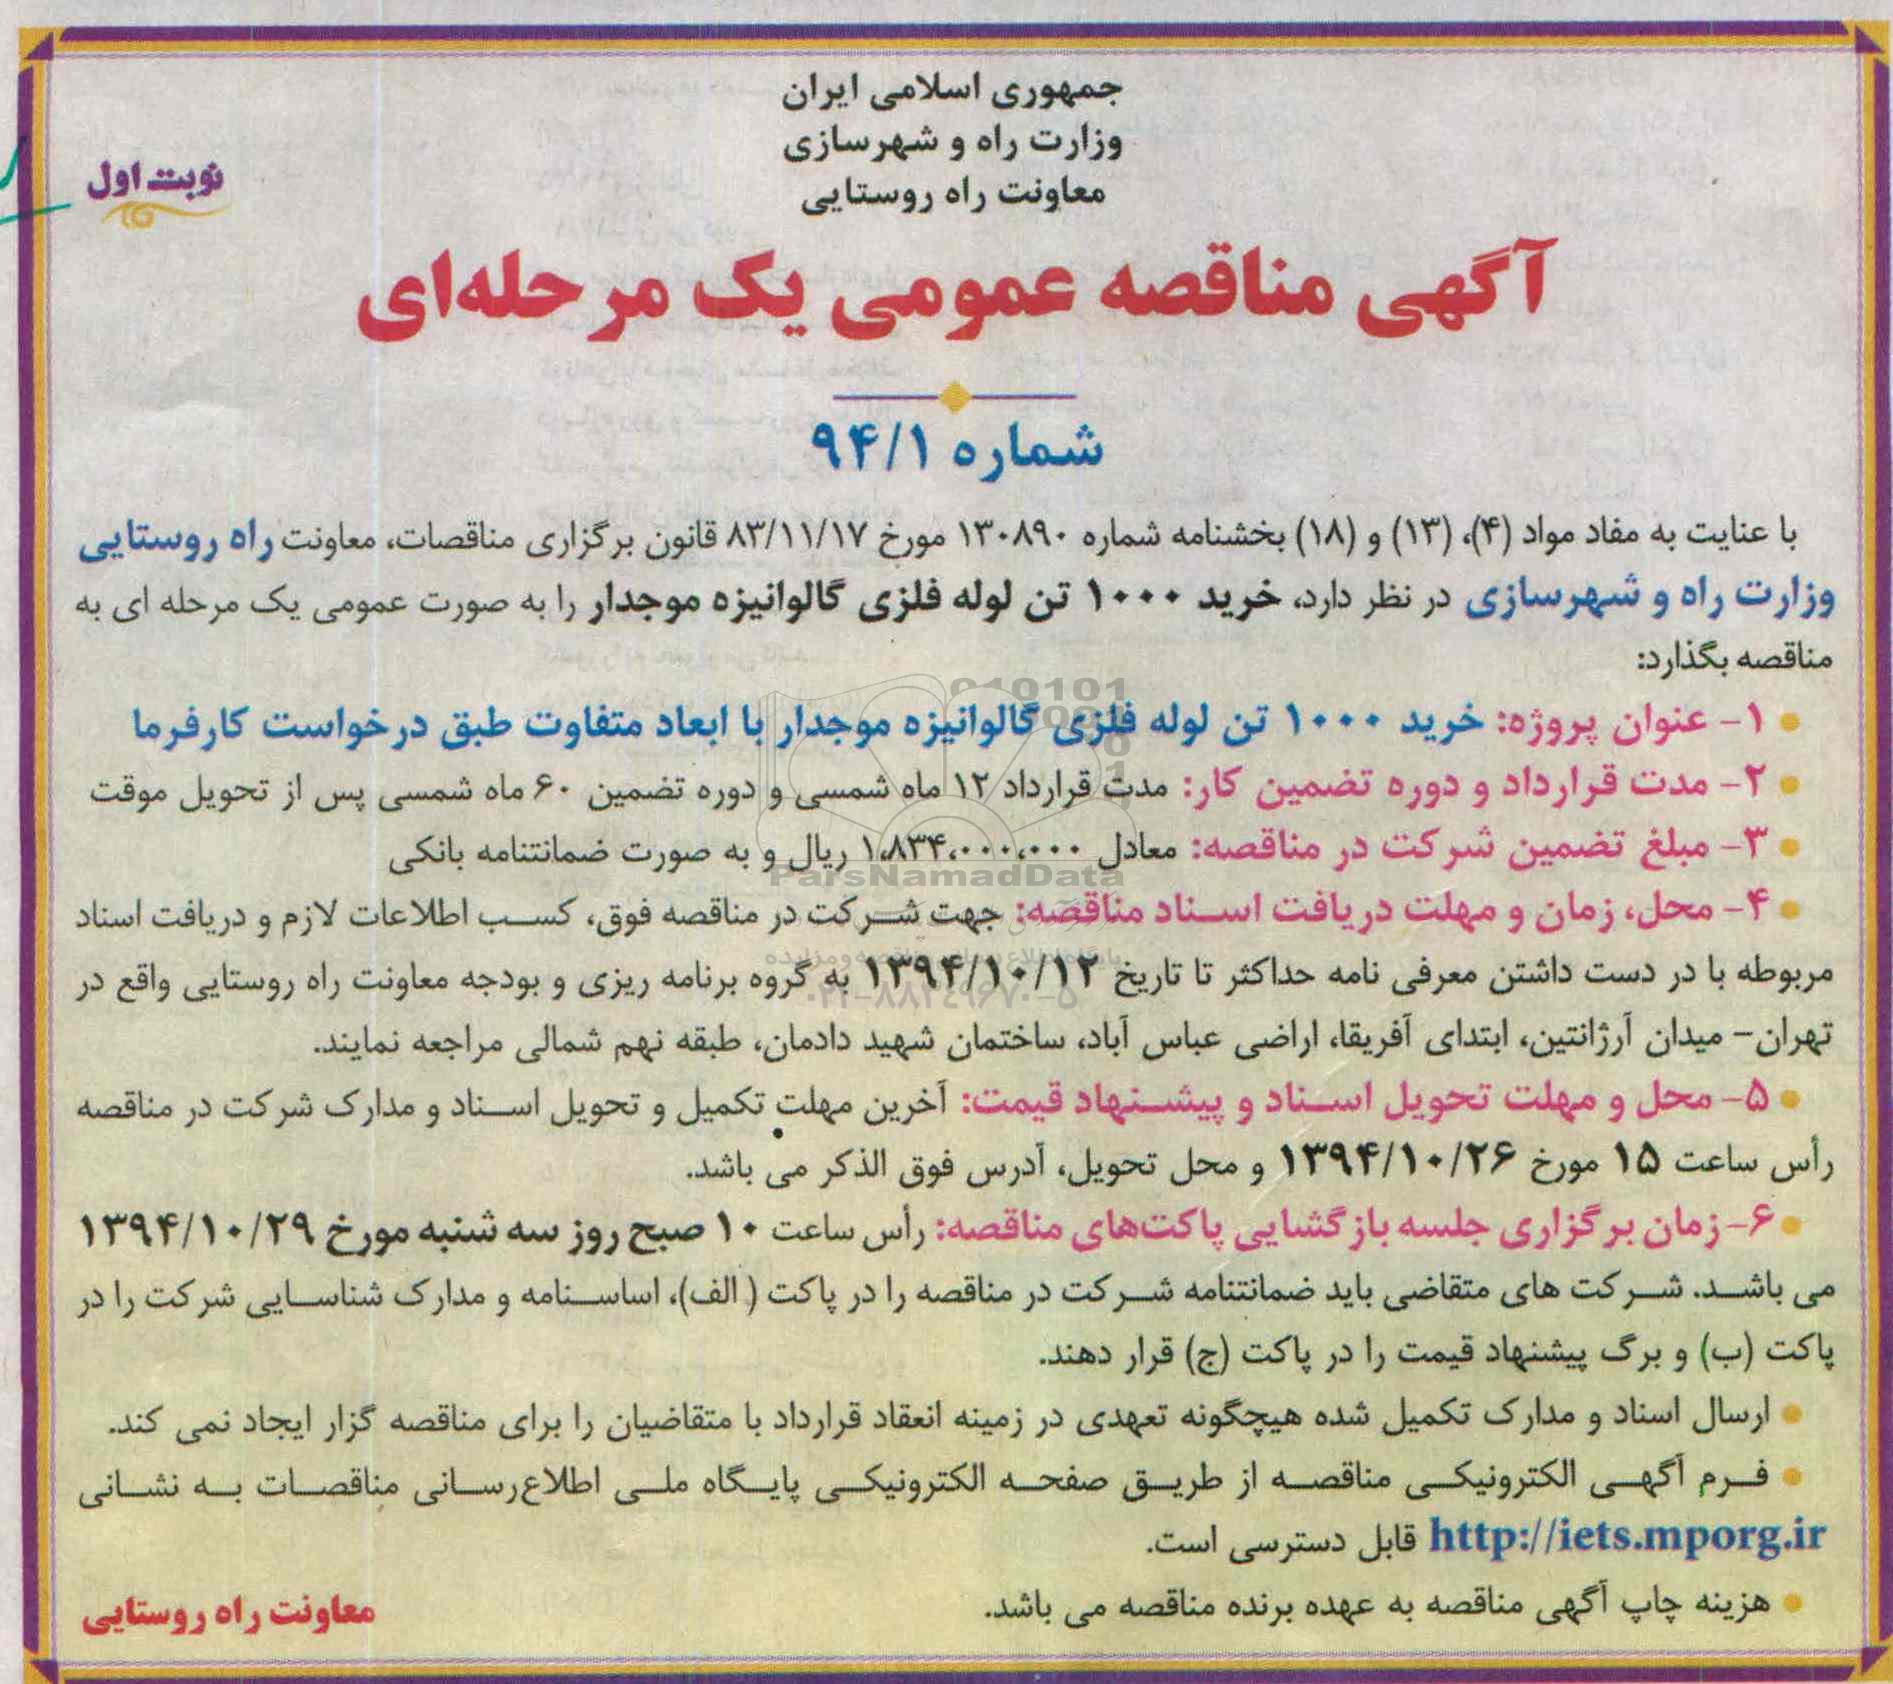 جمهوری اسلامی ایران
وزارت راه و شهرسازی
معاونت راه روستایی
نوبت اول
آگهی مناقصه عمومی یک مرحله‌ای
شماره ۹۴/۱
با عنایت به مفاد مواد (۴)، (۱۳) و (۱۸) بخشنامه شماره ۱۳۰۸۹۰ مورخ ۸۳/۱۱/۱۷ قانون برگزاری مناقصات، معاونت راه روستایی
وزارت راه و شهرسازی در نظر دارد، خرید ۱۰۰۰ تن لوله فلزی گالوانیزه موجدار را به صورت عمومی یک مرحله ای به
مناقصه بگذارد:
۱- عنوان پروژه: خرید ۱۰۰۰ تن لوله فلزی گالوانیزه موجدار با ابعاد متفاوت طبق درخواست کارفرما
۲- مدت قرارداد و دوره تضمین کار: مدت قرارداد ۱۲ ماه شمسی و دوره تضمین ۶۰ ماه شمسی پس از تحویل موقت
۳- مبلغ تضمین شرکت در مناقصه: معادل ۱،۸۳۴،۰۰۰،۰۰۰ ریال و به صورت ضمانتنامه بانکی
ParsNamadData
۴- محل، زمان و مهلت دریافت اسناد مناقصه: جهت شرکت در مناقصه فوق، کسب اطلاعات لازم و دریافت اسناد
مربوطه با در دست داشتن معرفی نامه حداکثر تا تاریخ ۱۳۹۴/۱۰/۱۲ به گروه برنامه ریزی و بودجه معاونت راه روستایی واقع در
۰۲۱-۸۸۳۴۹۶۷۰-۵
تهران- میدان آرژانتین، ابتدای آفریقا، اراضی عباس آباد، ساختمان شهید دادمان، طبقه نهم شمالی مراجعه نمایند.
۵- محل و مهلت تحویل اسناد و پیشنهاد قیمت: آخرین مهلت تکمیل و تحویل اسناد و مدارک شرکت در مناقصه
رأس ساعت ۱۵ مورخ ۱۳۹۴/۱۰/۲۶ و محل تحویل، آدرس فوق الذکر می باشد.
۶- زمان برگزاری جلسه بازگشایی پاکت‌های مناقصه: رأس ساعت ۱۰ صبح روز سه شنبه مورخ ۱۳۹۴/۱۰/۲۹
می باشد. شرکت های متقاضی باید ضمانتنامه شرکت در مناقصه را در پاکت (الف)، اساسنامه و مدارک شناسایی شرکت را در
پاکت (ب) و برگ پیشنهاد قیمت را در پاکت (ج) قرار دهند.
ارسال اسناد و مدارک تکمیل شده هیچگونه تعهدی در زمینه انعقاد قرارداد با متقاضیان را برای مناقصه گزار ایجاد نمی کند.
فرم آگهی الکترونیکی مناقصه از طریق صفحه الکترونیکی پایگاه ملی اطلاع‌رسانی مناقصات به نشانی
http://iets.mporg.ir قابل دسترسی است.
هزینه چاپ آگهی مناقصه به عهده برنده مناقصه می باشد.
معاونت راه روستایی